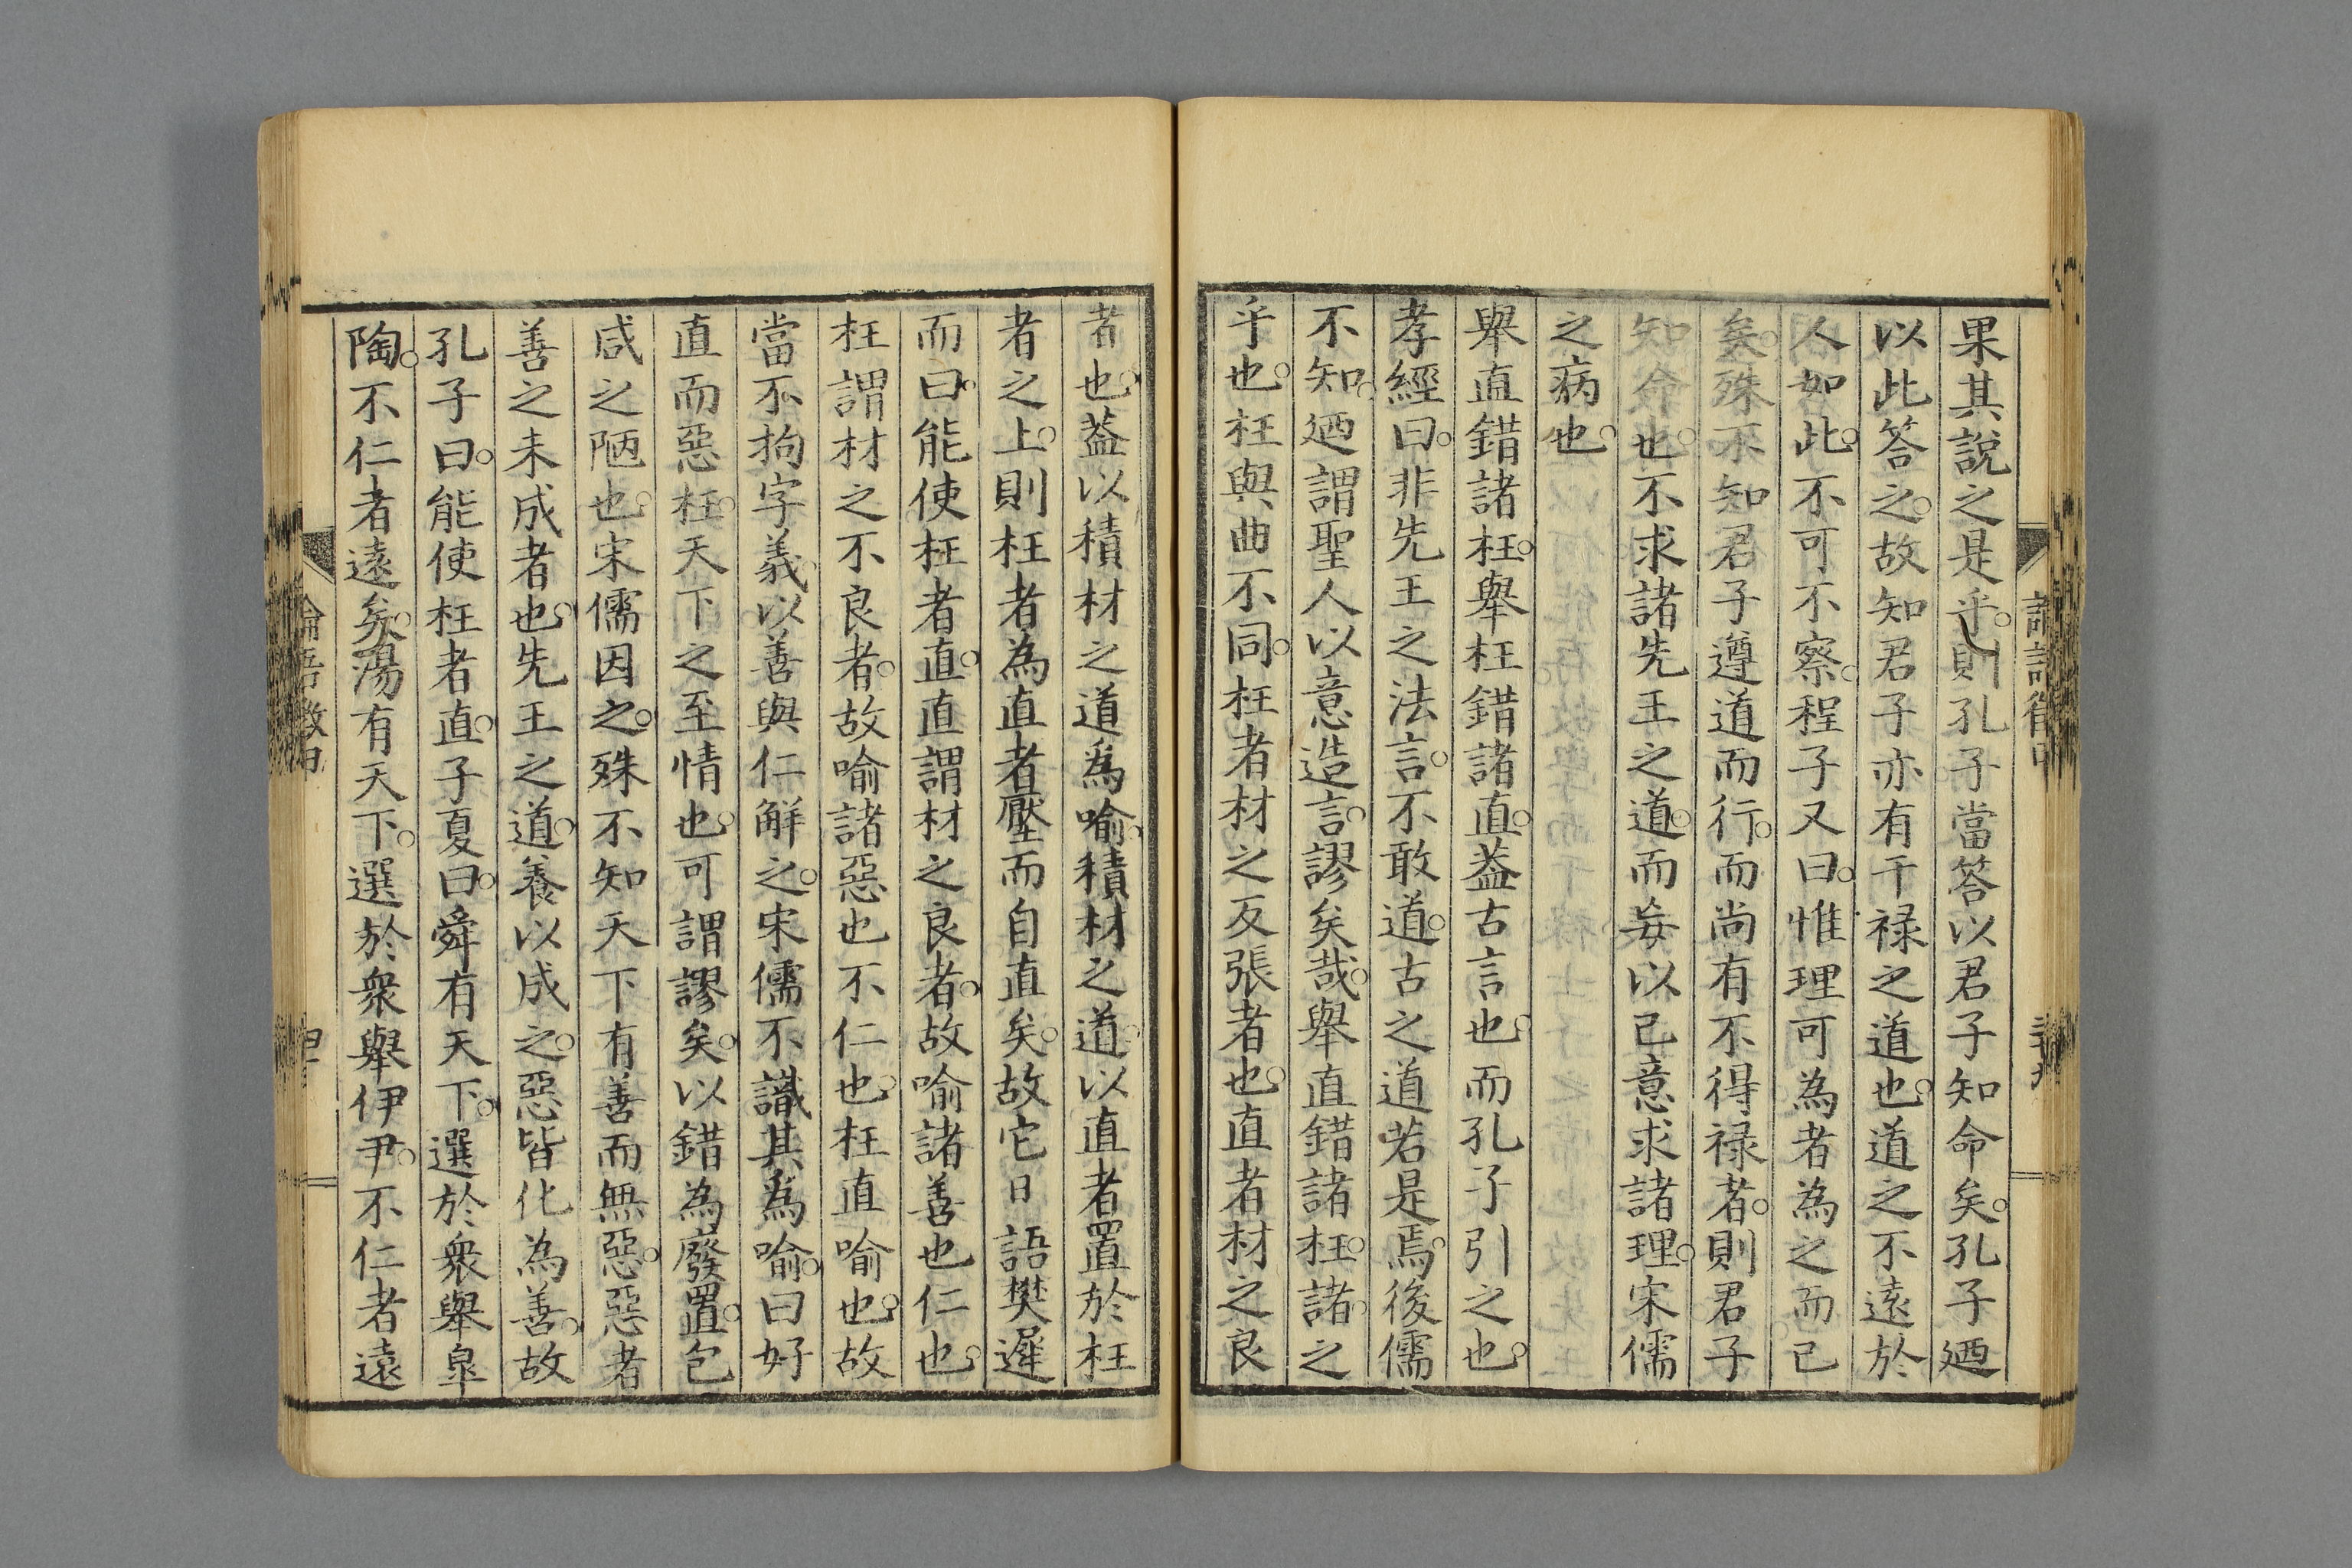 果其說之是乎。則孔子當答以君子知命矣。孔子廼
以此答之。故知君子亦有干祿之道也。道之不遠於
人如此。不可不察。程子又曰。惟理可為者為之而已
矣。殊不知君子遵道而行。而尚有不得祿者。則君子
知命也。不求諸先王之道。而妄以己意求諸理。宋儒
之病也。
舉直錯諸枉。舉枉錯諸直。蓋古言也。而孔子引之也。
孝經曰。非先王之法言。不敢道。古之道若是焉。後儒
不知。廼謂聖人以意造言。謬矣哉。舉直錯諸枉。諸。之
乎也。枉與曲不同。枉者材之反張者也。直者材之良
者也。蓋以積材之道爲喻。積材之道。以直者置於枉
者之上。則枉者為直者壓而自直矣。故它日語樊遲
而曰。能使枉者直。直謂材之良者。故喻諸善也仁也。
枉謂材之不良者。故喻諸惡也不仁也。枉直喻也。故
當不拘字義。以善與仁解之。宋儒不識其爲喻。曰好
直而惡枉。天下之至情也。可謂謬矣。以錯為廢置。包
咸之陋也。宋儒因之。殊不知天下有善而無惡。惡者
善之未成者也。先王之道。養以成之。惡皆化為善。故
孔子曰。能使枉者直。子夏曰。舜有天下。選於衆舉皐
陶。不仁者遠矣。湯有天下。選於衆舉伊尹。不仁者遠